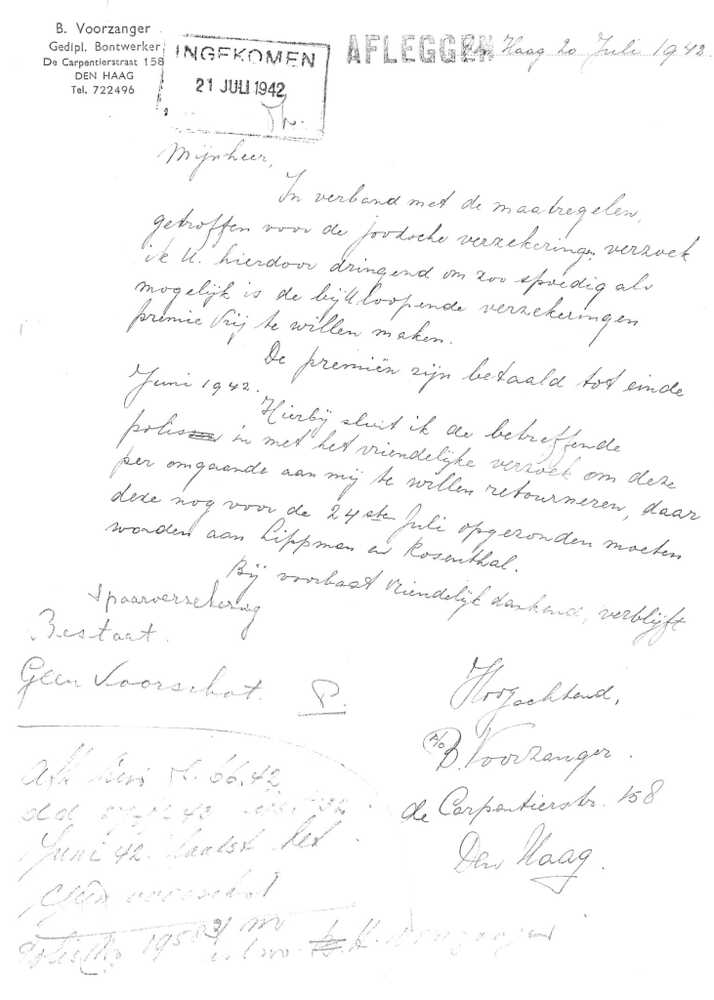 B. Voorzanger
Gedipl. Bontwerker
De Carpentierstraat 158
DEN HAAG
Tel. 722496
INGEKOMEN
21 JULI 1942
AFLEGGEN
Den Haag 20 Juli 1942.
Mijnheer,
In verband met de maatregelen,
getroffen voor de joodsche verzekeringen, verzoek
ik U. hierdoor dringend om zoo spoedig als
mogelijk is de bij U. loopende verzekeringen
premie vrij te willen maken.
De premiën zijn betaald tot einde
Juni 1942.
Hierbij sluit ik de betreffende
polis in met het vriendelijke verzoek om deze
per omgaande aan mij te willen retourneren, daar
deze nog voor de 24ste Juli opgezonden moeten
worden aan Lippman en Rosenthal.
Bij voorbaat vriendelijk dankend, verblijft
Spaarverzekering
Bestaat.
Geen Voorschot. P.
Hoogachtend,
B. Voorzanger.
de Carpentierstr. 158
Den Haag.
66.42
Juni 42. laatst het
geen voorschot